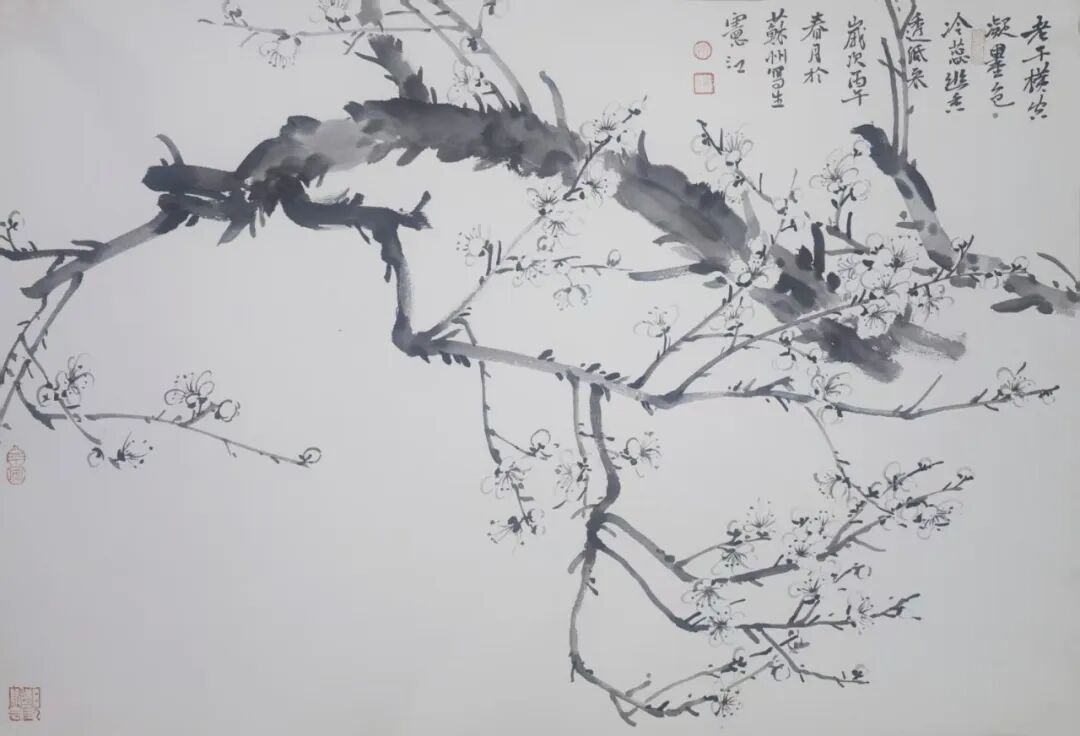 老干横空
凝墨色。
冷蕊幽香
透纸来
歲次丙午
春月於
蘇州寫生
憲江